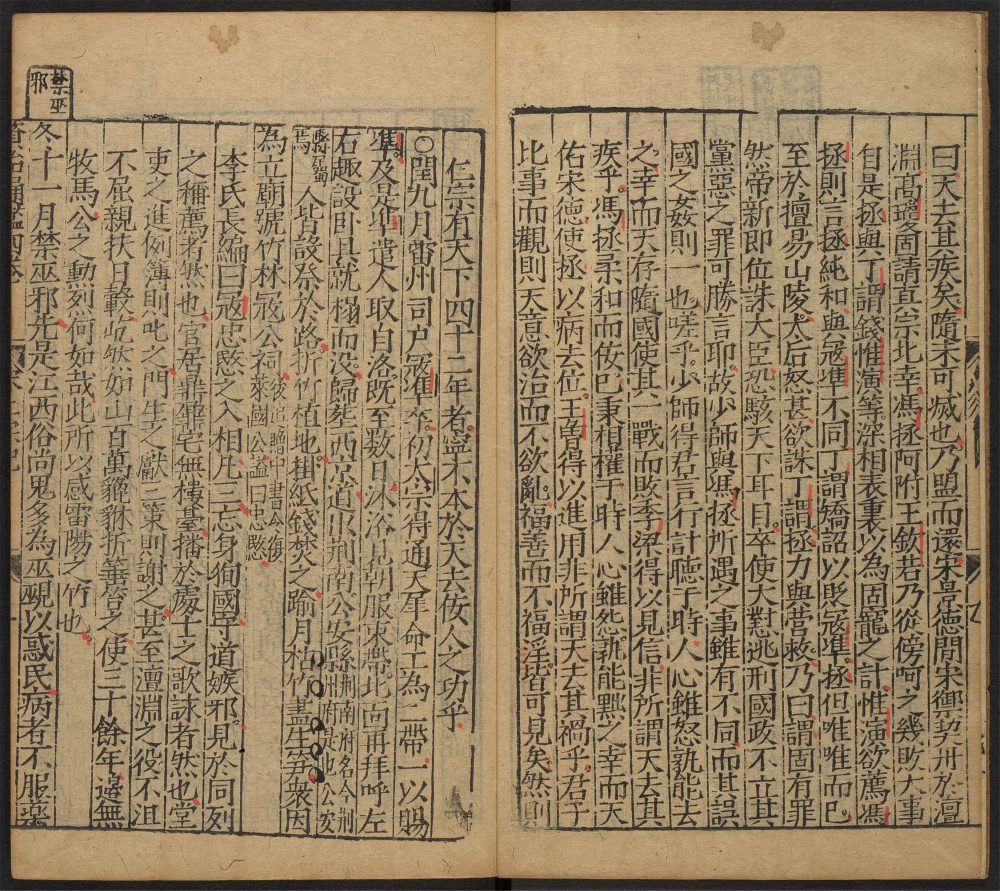 曰天去其疾矣隨未可㓕也乃盟而還宋景德間宋禦契丹於澶
淵高瓊固請真宗北幸馮拯阿附王欽若乃從傍呵之幾敗大事
自是拯與丁謂錢惟演等深相表裏以為固寵之計惟演欲薦馮
拯則言拯純和與寇準不同丁謂矯詔以貶寇準拯但唯唯而已
至於擅易山陵太后怒甚欲誅丁謂拯力與營救乃曰謂固有罪
然帝新即位誅大臣恐駭天下耳目卒使大憝逃刑國政不立其
黨惡之罪可勝言耶故少師與馮拯所遇之事雖有不同而其誤
國之姦則一也嗟乎少師得君言行計聽于時人心雖怒孰能去
之幸而天存隨國使其一戰而敗季梁得以見信非所謂天去其
疾乎馮拯柔和而佞已秉相權于時人心雖怨孰能黜之幸而天
佑宋德使拯以病去位王曾得以進用非所謂天去其禍乎君子
比事而觀則天意欲治而不欲亂福善而不福淫皆可見矣然則
仁宗有天下四十二年者寧不本於天去佞人之功乎
○閏九月雷州司户寇準卒初太宗得通天犀命工為二帶一以賜
準及是準遣人取自洛既至數日沐浴見朝服束帶北向再拜呼左
右趣設卧具就榻而没歸葬西京道出荆南公安縣荆南府名今荆州府是也公安
縣屬焉人皆設祭於路折竹植地掛紙錢焚之踰月枯竹盡生笋衆因
為立廟號竹林寇公祠後追贈中書令復萊國公謚曰忠愍
李氏長編曰寇忠愍之入相凡三忘身徇國守道嫉邪見於同列
之稱薦者然也官居鼎鼐宅無樓臺播於處士之歌詠者然也堂
吏之進例簿則叱之門生之獻三策則謝之甚至澶淵之役不沮
不屈親扶日轂屹然如山百萬貔貅折箠笞之使三十餘年邊無
牧馬公之勲烈何如哉此所以感雷陽之竹也
禁巫邪
冬十一月禁巫邪先是江西俗尚鬼多為巫覡以惑民病者不服藥